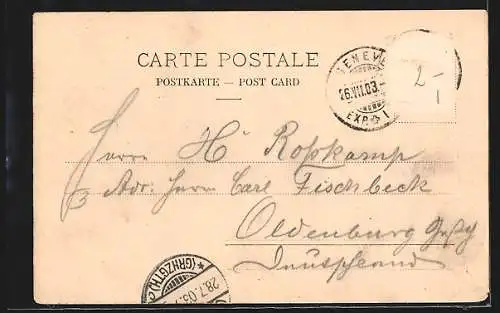 CARTE POSTALE
POSTKARTE — POST CARD
GENÈVE
26.VII.03.-
EXP. 1
2-
Herrn H. Roßkamp
z Adr: Herrn Carl Fischbeck
Oldenburg
Deutschland
*(GRHZGTH.)
28.7.03.